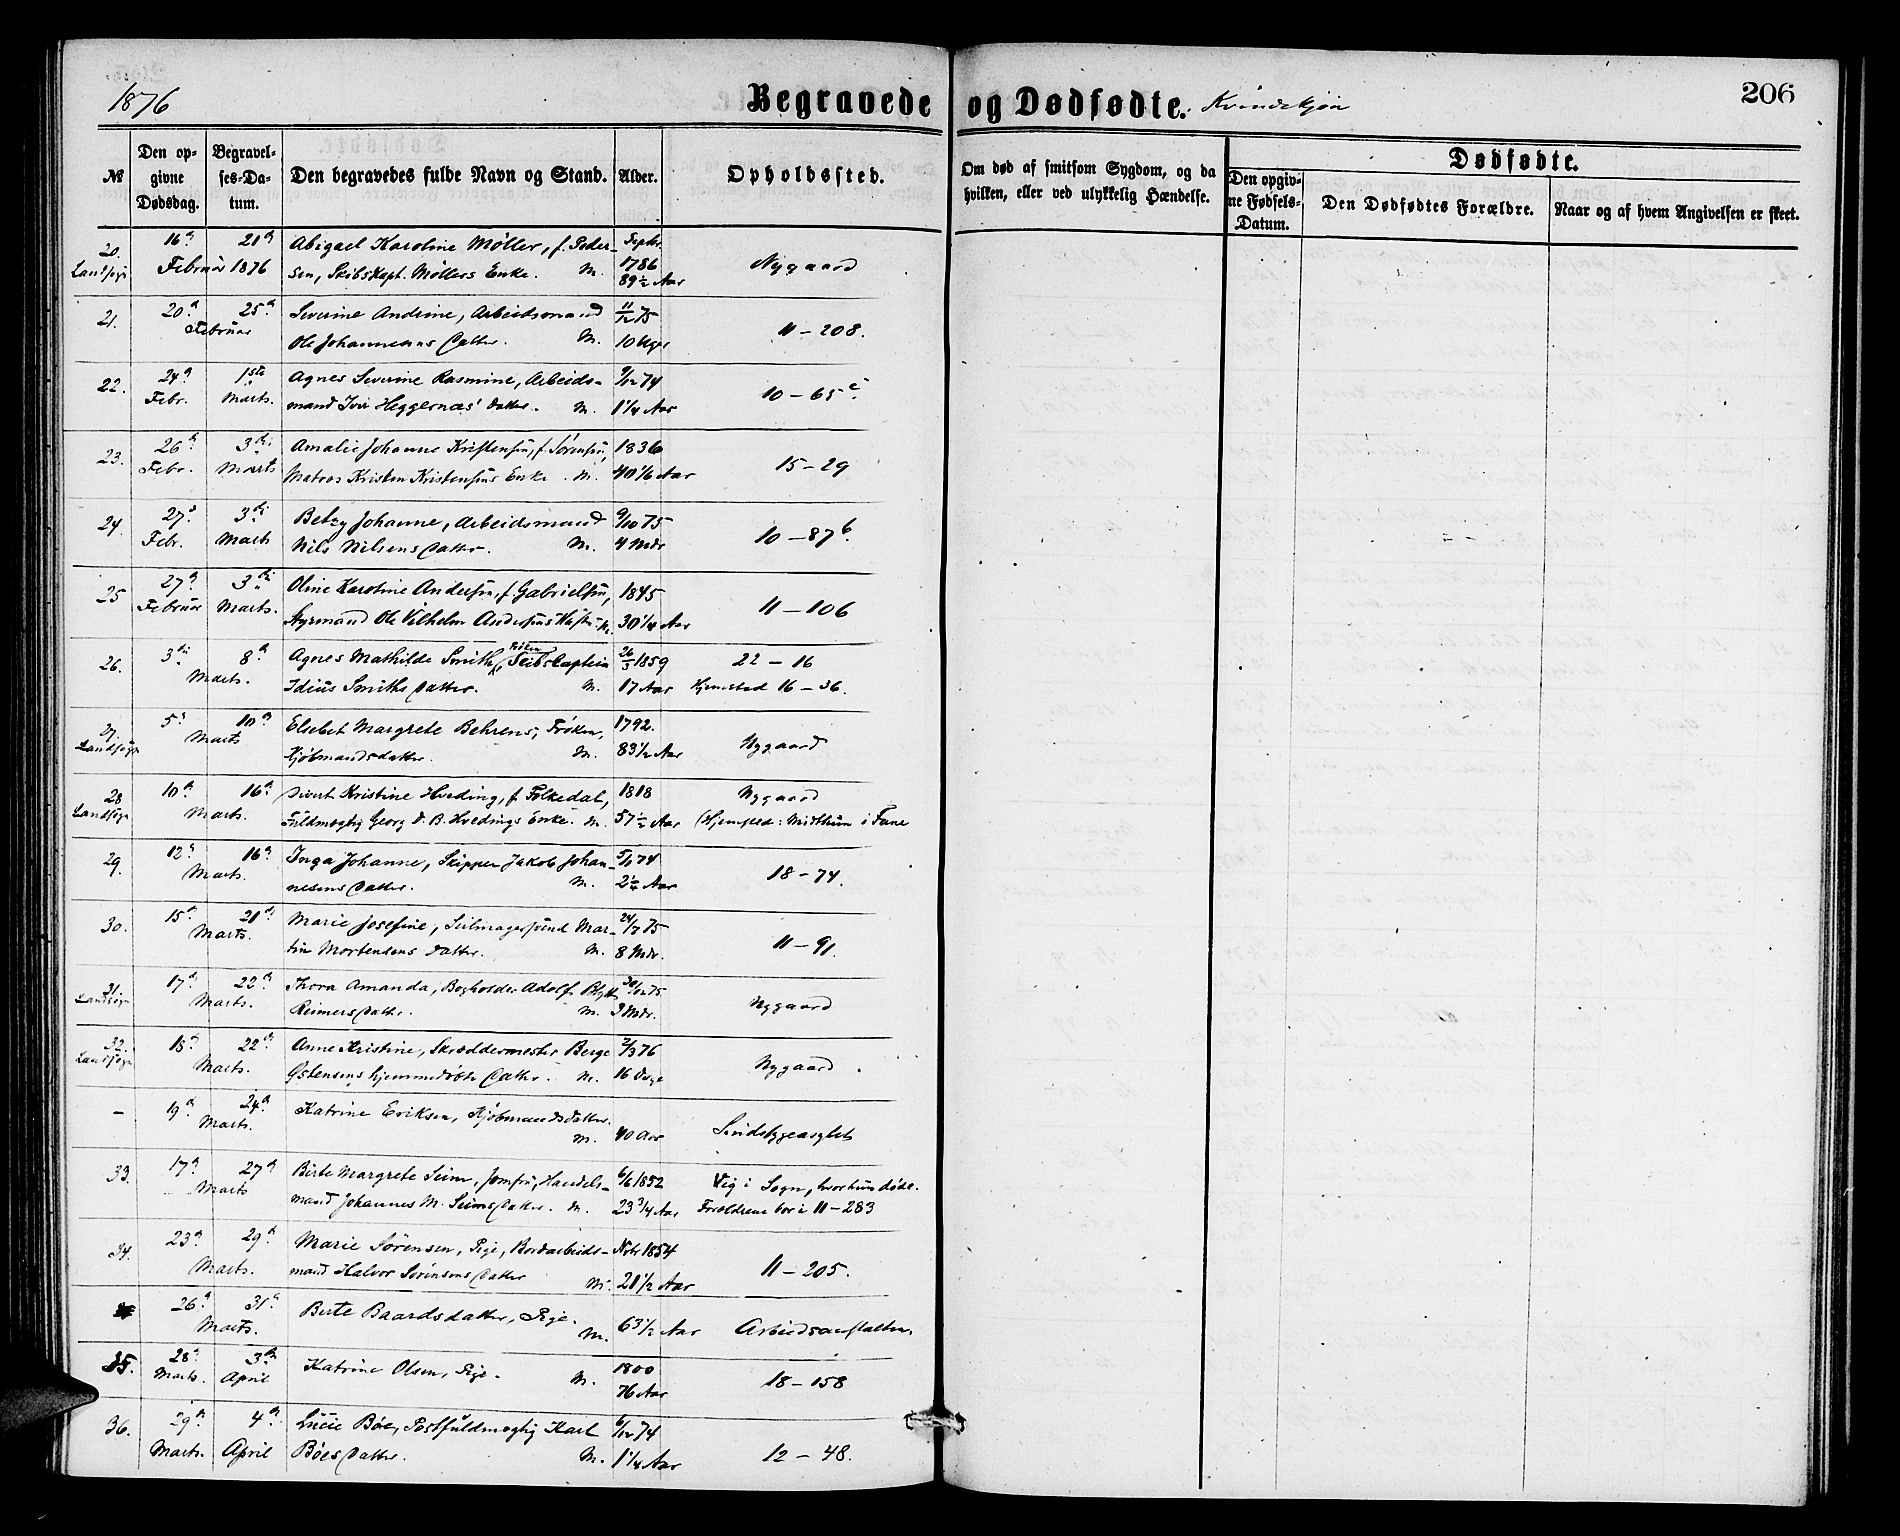 1876
Begravede og Dødfødte. Kvindekjøn
206
№
Den opgivne Dødsdag.
Begravelses-Datum.
Den begravedes fulde Navn og Stand.
Alder.
Opholdssted.
Om død af smitsom Sygdom, og da hvilken, eller ved ulykkelig Hændelse.
Dødfødte.
Den opgivne Fødsels-Datum.
Den Dødfødtes Forældre.
Naar og af hvem Angivelsen er skeet.
20. 16de 21de Abigael Karoline Møller, f. Peder- Septbr.
Landsogn Februar 1876 sen, Skibskapt. Møllers Enke. M. 1786 89½ Aar Nygaard
21. 20de 25de Severine Andrine, Arbeidsmand 11/12 75
Februar Ole Johannesens Datter. M. 10 Uger 11 – 208.
22. 24de 1ste Agnes Severine Rasmine, Arbeids- 9/12 74
Febr. Marts. mand Iver Heggernæs' Datter. M. 1¼ Aar 10 – 65 c.
23. 26de 3die Amalie Johanne Kristensen, f. Sørensen, 1836
Febr. Marts Matros Kristen Kristensens Enke. M. 40 1/6 Aar 15 – 29
24. 27de 3die Betzy Johanne, Arbeidsmand 9/10 75
Febr. Marts Nils Nilsens Datter. M. 4 Mdr 10 – 87 b.
25 27de 3die Oline Karoline Andersen, f. Gabrielsen, 1845
Februar Marts. Styrmand Ole Vilhelm Andersens Hustru. M. 30¼ Aar 11 – 106
26. 3die 8de Agnes Mathilde Smith, Frøken, Skibskaptein 26/3 1859 22 – 16
Marts. Idius Smiths Datter. M. 17 Aar Hjemsted 16 – 36.
27. 5te 10de Elsebet Margrete Behrens, Frøken, 1792.
Landsogn Marts Kjøbmandsdatter. M. 83½ Aar Nygaard
28 10de 16de Sivert Kristine Hveding, f. Folkedal, 1818 Nygaard
Landsogn Marts. Fuldmægtig Georg D. B. Hvedings Enke. M. 57½ Aar (Hjemsted: Midttun i Fane
29. 12te 16de Inga Johanne, Skipper Jakob Johan- 5/1 74
Marts. nesens Datter. M. 2¼ Aar 18 – 74.
30. 15de 21de Marie Josefine, Seilmagersvend Mar- 24/7 75
Marts. tin Mortensens Datter. M. 8 Mdr. 11 – 91.
31. 17de 22de Thora Amanda, Bogholder Adolf Blytt 30/12 75
Landsogn Marts. Reimers Datter. M. 3 Mdr. Nygaard
32. 18de 22de Anne Kristine, Skræddermester Berge 2/3 76
Landsogn Marts. Gstensens hjemmedøbte Datter. M. 16 Dage Nygaard
– 19de 24de Katrine Eriksen, Kjøbmandsdatter.
Marts. M. 40 Aar Sindsygeasylet
33. 17de 27de Birte Margrete Seim, Jomfru, Handels- 6/6 1852 Vig i Sogn, hvor hun døde.
Marts mand Johannes M. Seims Datter. M. 23¾ Aar Forældrene bor i 11 – 283
34. 23de 29de Marie Sørensen, Pige, Bordarbeids- Novbr 1854
Marts. mand Halvor Sørensens Datter M. 21½ Aar 11 – 205.
26de 31te Birte Baardsdatter, Pige.
Marts. M. 63½ Aar Arbeidsanstalten
35. 28de 3die Katrine Olsen, Pige. 1800
Marts. April M. 76 Aar 18 – 158
36. 29de 4de Lucie Bøe, Postfuldmægtig Karl 6/12 74
Marts. April Bøes Datter. M. 1¼ Aar 12 – 48.